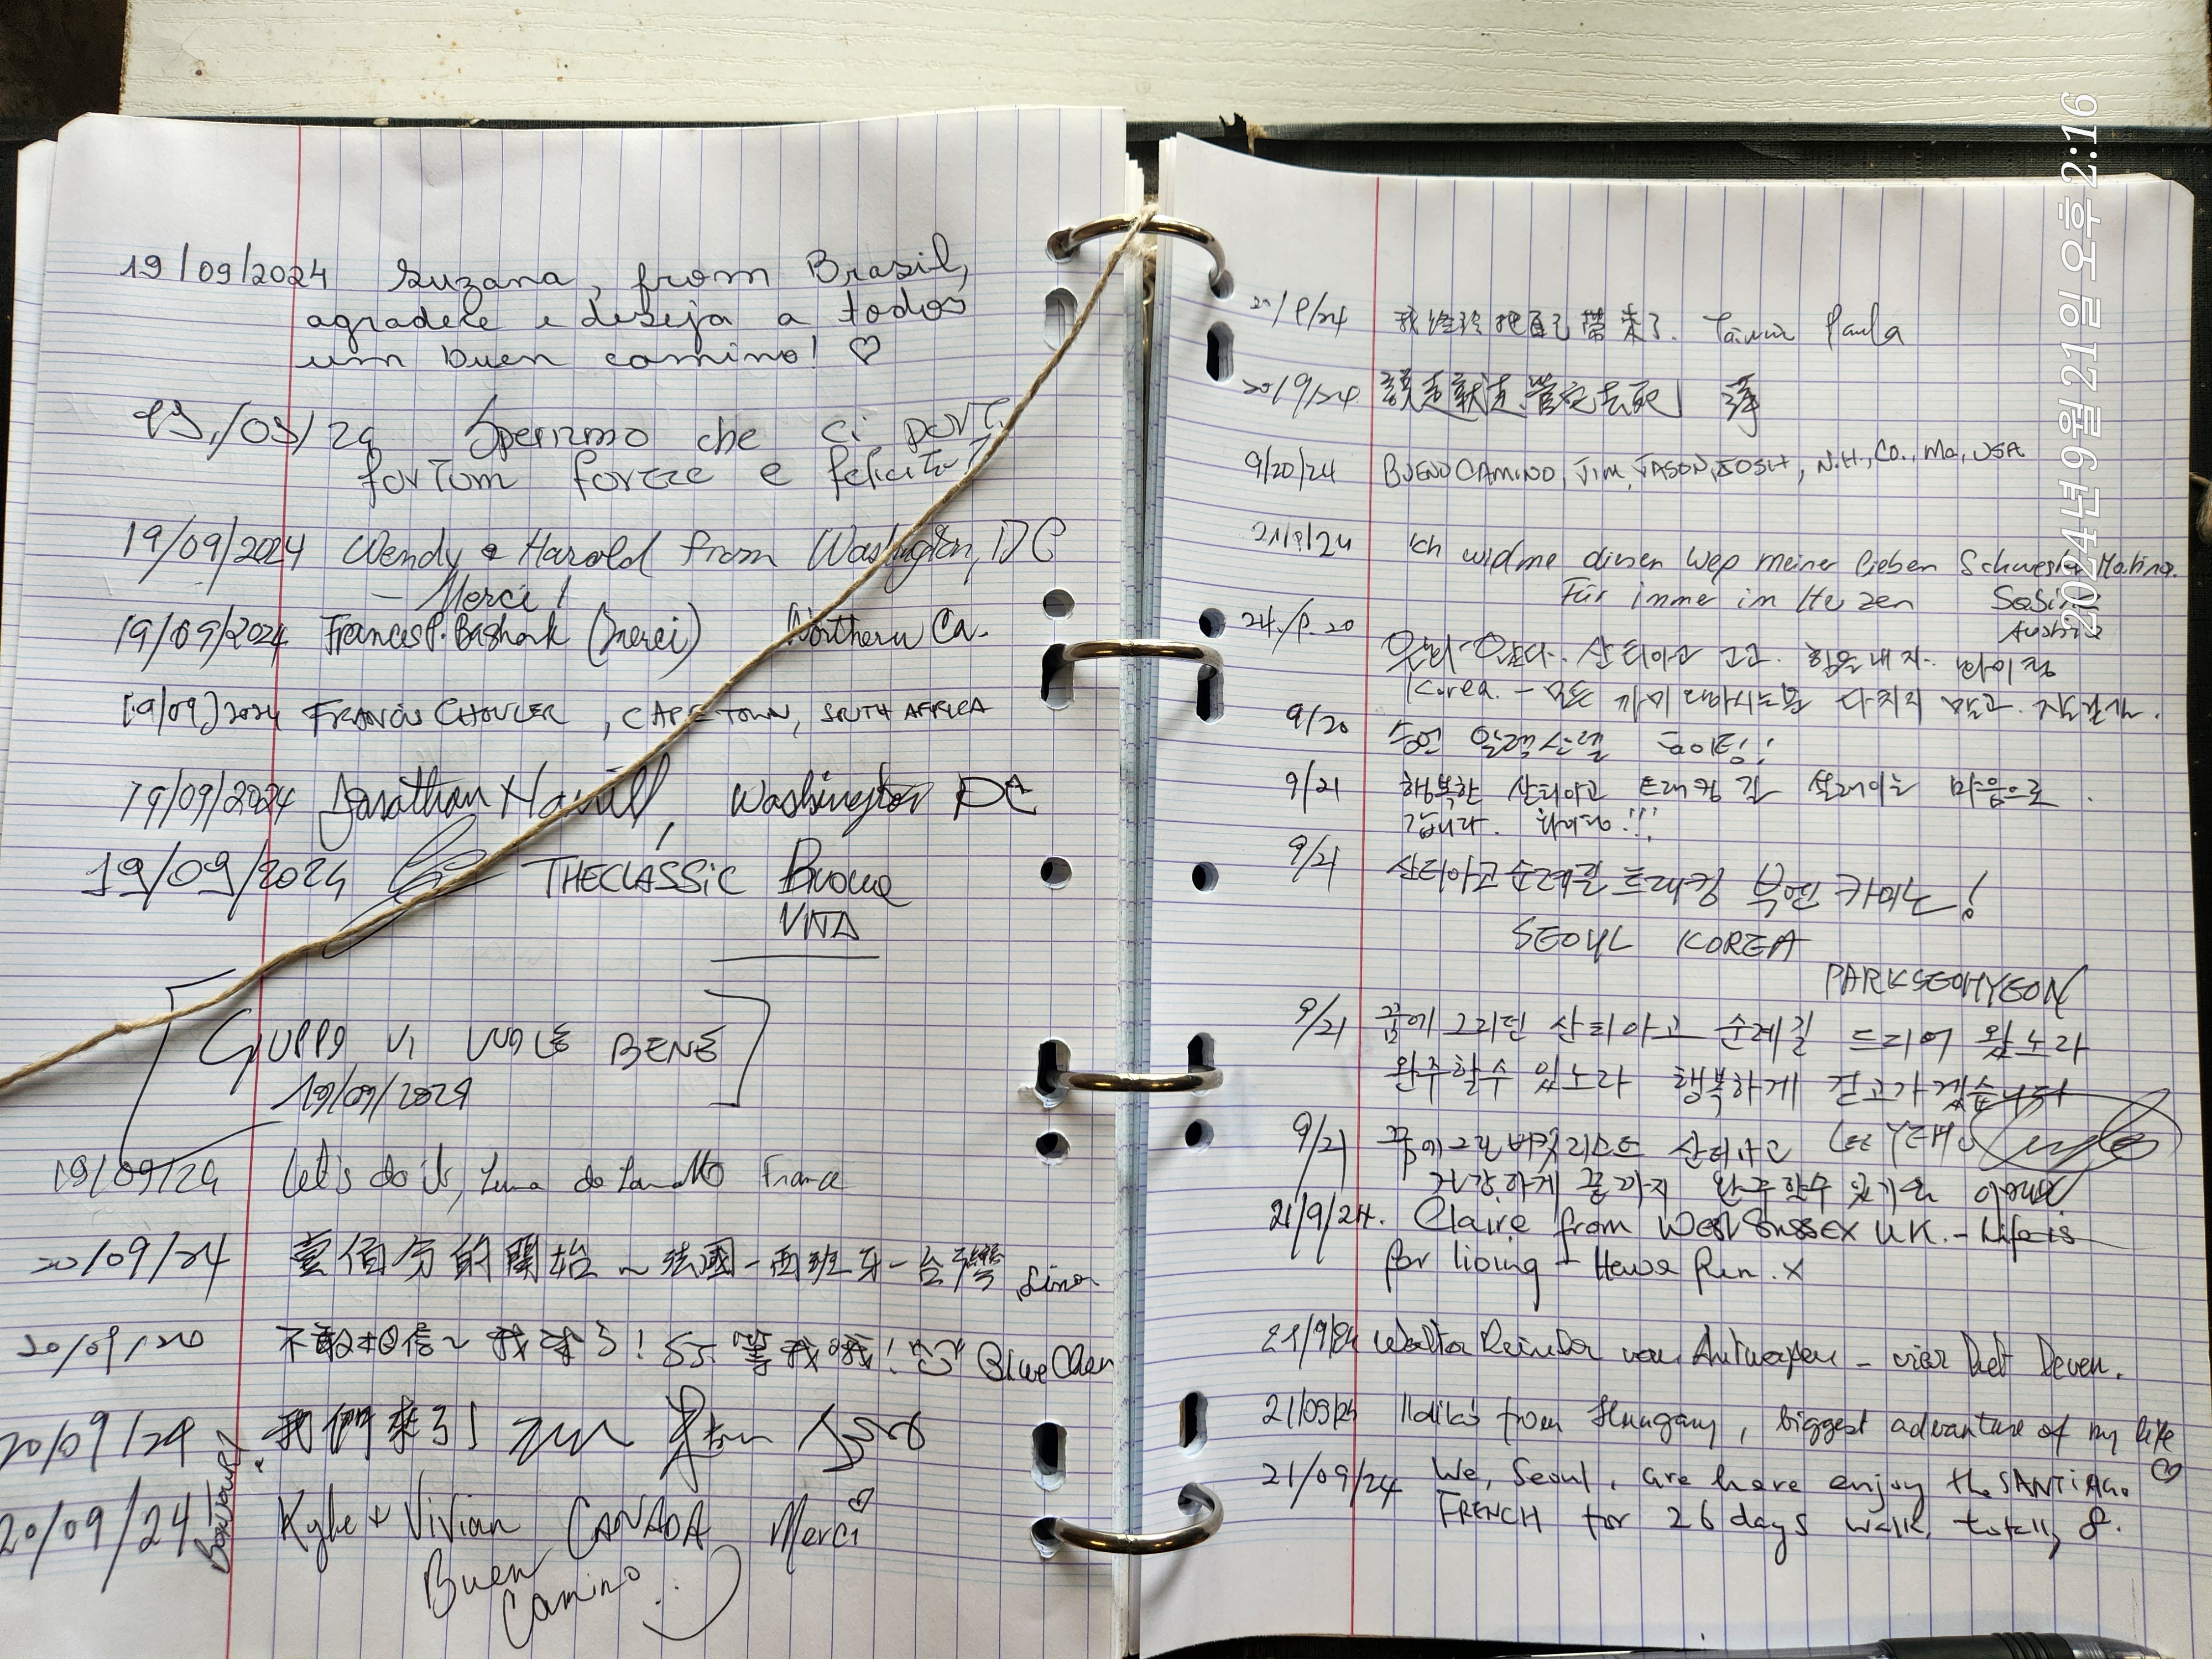 19/09/2024 Suzana, from Brasil,
agradece e deseja a todos
um buen camino! ♡
19/09/24 Speriamo che ci porti
fortuna forze e felicità
19/09/2024 Wendy & Harold from Washington, DC
- Merci!
19/09/2024 Frances P. (merci) Northern Ca.
19/09/2024 FRANCIS CHOULER, CAPE TOWN, SOUTH AFRICA
19/09/2024 Jonathan Hamill, Washington DC
19/09/2024 THECLASSIC Buona
VITA
GUPPO VI VUOLE BENE
19/09/2024
19/09/24 Let's do it, France
20/09/24 壹佰分的開始~法國-西班牙-台灣
20/09/20 不敢相信~我來了! 等我哦! Blue Chen
20/09/24 我們來了!
20/09/24 Bonjour! Kyle + Vivian CANADA Merci ♡
Buen
Camino :)
我終於把自己帶來了. Paula
20/9/24
9/20/24 BUENO CAMINO, JIM, JASON, JOSH, N.H., CO., Ma, USA
21/9/24 Ich widme diesen Weg meiner lieben Schwester
Für imme im Herzen Sabine
Austria
산티아고 고고. 힘을내자.
Korea. - 다치지 말고.
9/20
9/21 행복한 산티아고 트래킹 길 설레이는 마음으로.
갑니다. 화이팅!!!
9/21 산티아고순례길 트래킹 부엔 카미노!
SEOUL KOREA
PARKSEOHYEON
9/21 꿈에 그리던 산티아고 순례길 드디어 왔노라
완주할수 있노라 행복하게 걷고가겠습니다
9/21 꿈에그린버킷리스트 산티아고 LEE
건강하게 끝까지 완주할수 있기를
21/9/24. Claire from West Sussex UK. - Life is
for living - x
21/9/24 Walter van Antwerpen -
21/09/24 Ildikó from Hungary, biggest advanture of my life
♡
21/09/24 We, Seoul, are here enjoy the SANTIAGO
FRENCH for 26 days walk, totally 8.
2024년 9월 21일 오후 2:16